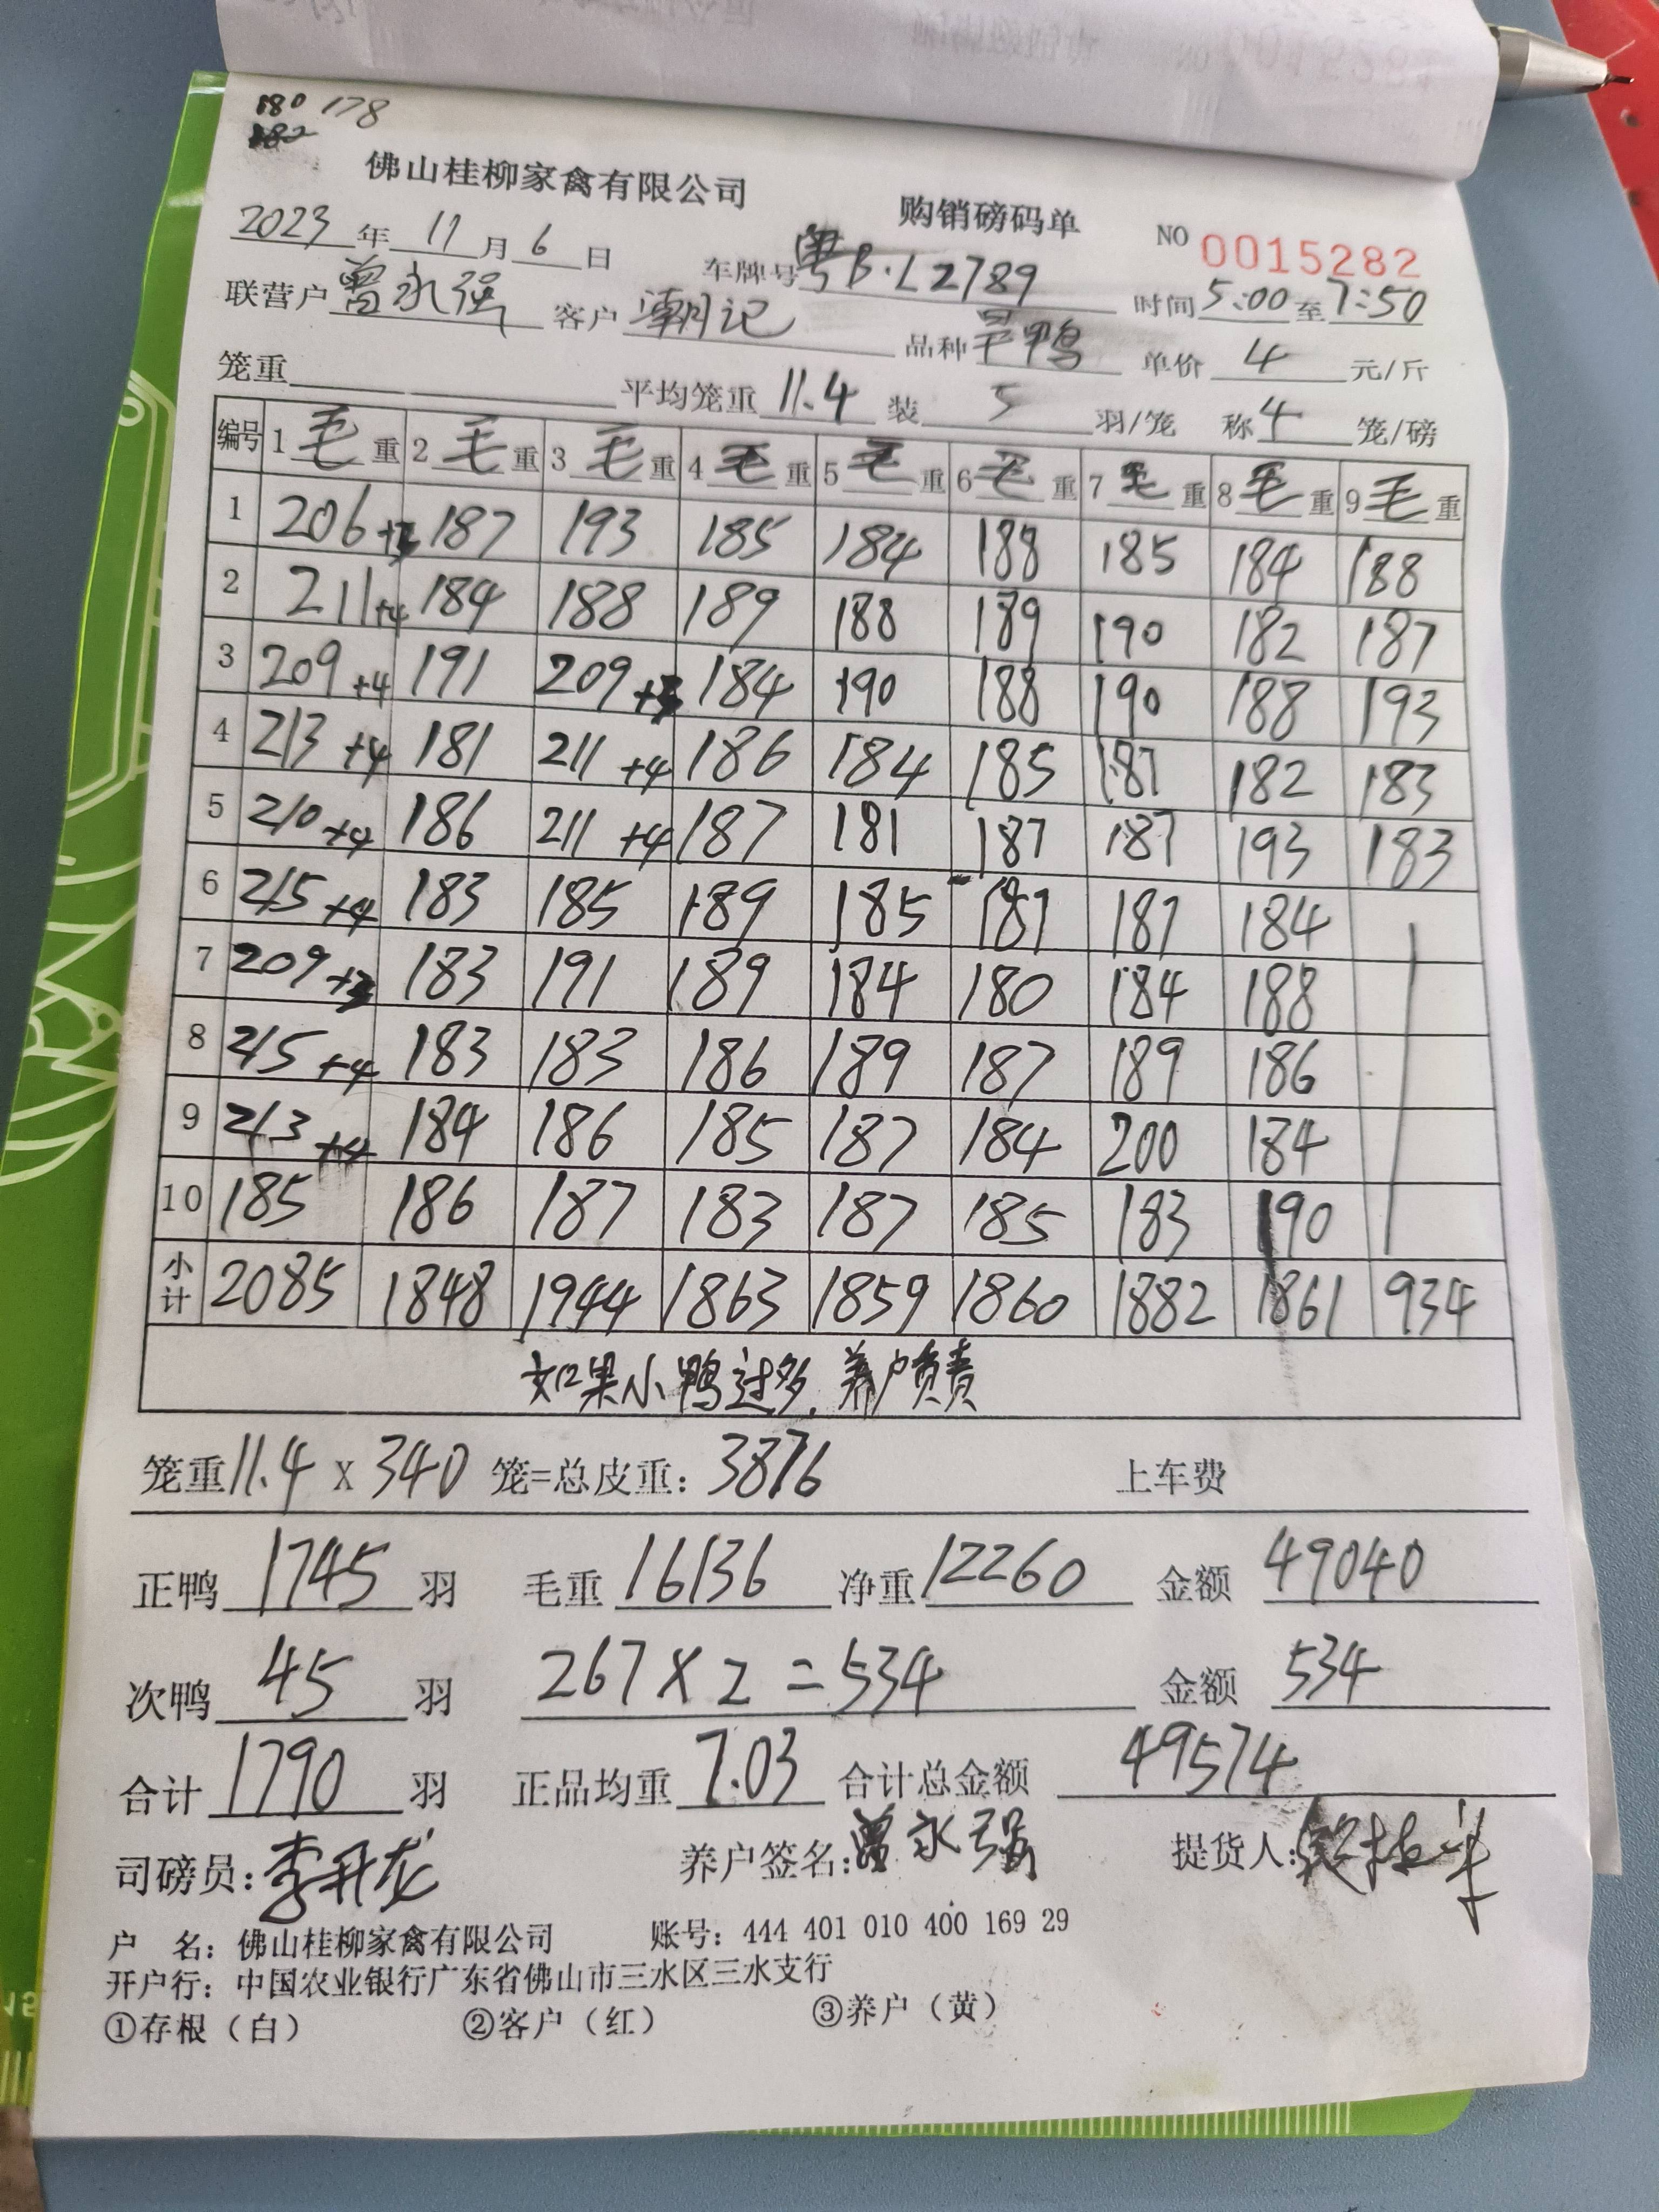 180 178
182
佛山桂柳家禽有限公司 购销磅码单 NO 0015282
2023年11月6日 车牌号粤B·L2789 时间5:00至7:50
联营户曾永强 客户潮记 品种旱鸭 单价4元/斤
笼重 平均笼重11.4 装5羽/笼 称4笼/磅
编号 1毛重 2毛重 3毛重 4毛重 5毛重 6毛重 7毛重 8毛重 9毛重
1 206+3 187 193 185 184 188 185 184 188
2 211+4 184 188 189 188 189 190 182 187
3 209+4 191 209+3 184 190 188 190 188 193
4 213+4 181 211+4 186 184 185 187 182 183
5 210+4 186 211+4 187 181 187 187 193 183
6 215+4 183 185 189 185 187 187 184
7 209+3 183 191 189 184 180 184 188
8 215+4 183 183 186 189 187 189 186
9 213+4 184 186 185 187 184 200 184
10 185 186 187 183 187 185 183 190
小计 2085 1848 1944 1863 1859 1860 1882 1861 934
如果小鸭过多,养户负责
笼重11.4 x 340 笼=总皮重:3876 上车费
正鸭1745羽 毛重16136 净重12260 金额49040
次鸭45羽 267×2=534 金额534
合计1790羽 正品均重7.03 合计总金额49574
司磅员:李开龙 养户签名:曾永强 提货人:
户 名:佛山桂柳家禽有限公司 账号:444 401 010 400 169 29
开户行:中国农业银行广东省佛山市三水区三水支行
①存根(白) ②客户(红) ③养户(黄)